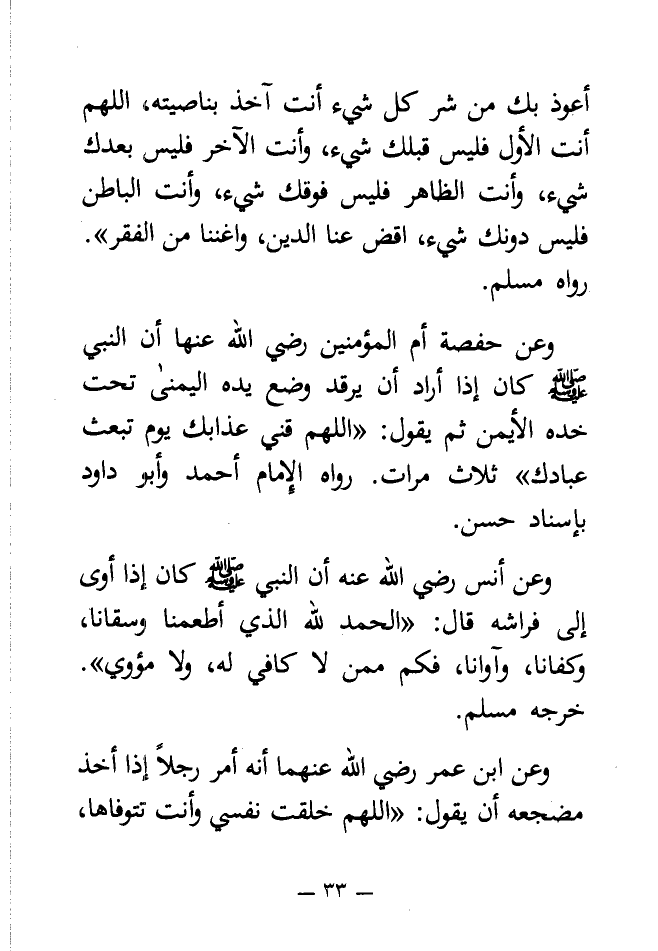 أعوذ بك من شر كل شيء أنت آخذ بناصيته، اللهم
أنت الأول فليس قبلك شيء، وأنت الآخر فليس بعدك
شيء، وأنت الظاهر فليس فوقك شيء، وأنت الباطن
فليس دونك شيء، اقض عنا الدين، واغننا من الفقر».
رواه مسلم.
وعن حفصة أم المؤمنين رضي الله عنها أن النبي
ﷺ كان إذا أراد أن يرقد وضع يده اليمنىٰ تحت
خده الأيمن ثم يقول: «اللهم قني عذابك يوم تبعث
عبادك» ثلاث مرات. رواه الإمام أحمد وأبو داود
بإسناد حسن.
وعن أنس رضي الله عنه أن النبي ﷺ كان إذا أوى
إلى فراشه قال: «الحمد لله الذي أطعمنا وسقانا،
وكفانا، وآوانا، فكم ممن لا كافي له، ولا مؤوي».
خرجه مسلم.
وعن ابن عمر رضي الله عنهما أنه أمر رجلاً إذا أخذ
مضجعه أن يقول: «اللهم خلقت نفسي وأنت تتوفاها،
— ٣٣ —